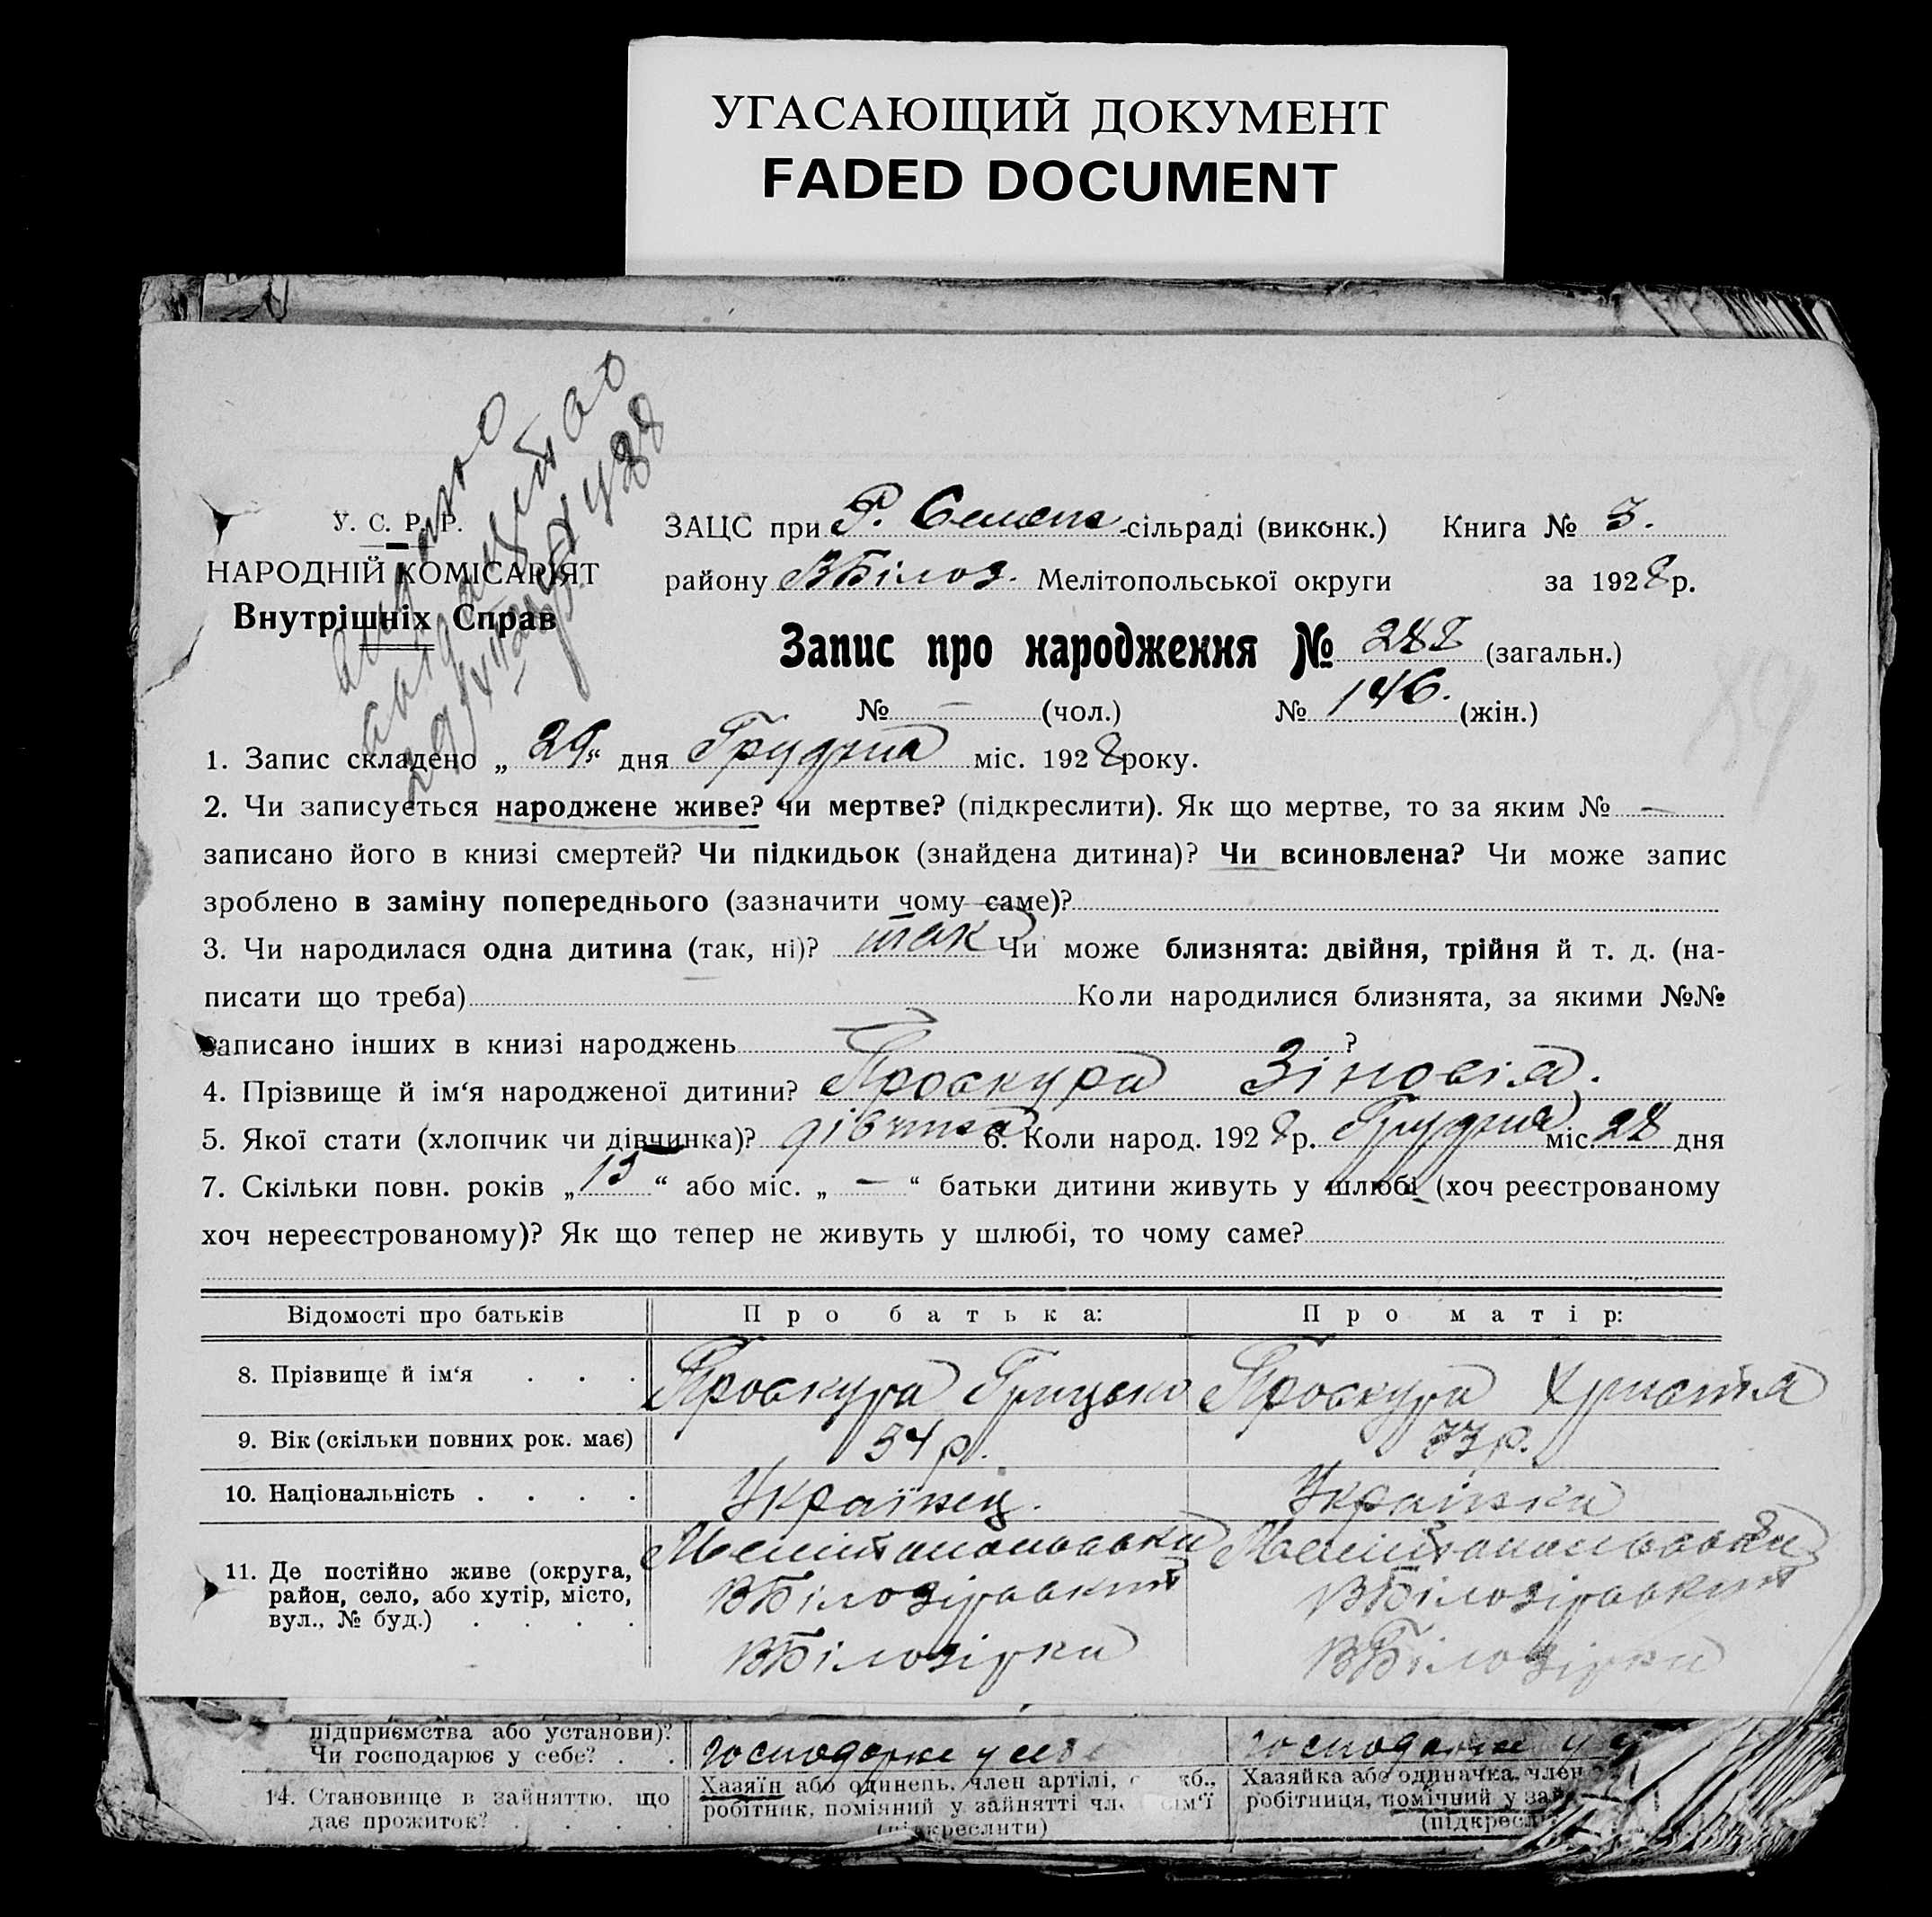 УГАСАЮЩИЙ ДОКУМЕНТ
FADED DOCUMENT
У. С. Р. Р.
НАРОДНІЙ КОМІСАРІЯТ
Внутрішніх Справ
ЗАЦС при Р. -сільраді (виконк.) Книга № 3.
району ВБілоз. Мелітопольської округи за 1928 р.
Запис про народження № 288 (загальн.)
№ — (чол.) № 146. (жін.)
1. Запис складено „ 29 “ дня Грудня міс. 1928 року.
2. Чи записується народжене живе? чи мертве? (підкреслити). Як що мертве, то за яким № —
записано його в книзі смертей? Чи підкидьок (знайдена дитина)? Чи всиновлена? Чи може запис
зроблено в заміну попереднього (зазначити чому саме)?
3. Чи народилася одна дитина (так, ні)? так Чи може близнята: двійня, трійня й т. д. (на-
писати що треба) Коли народилися близнята, за якими №№
записано інших в книзі народжень ?
4. Прізвище й ім‘я народженої дитини? Проскура Зіновія.
5. Якої стати (хлопчик чи дівчинка)? дівчина 6. Коли народ. 1928 р. Грудня міс. 28 дня
7. Скільки повн. років „ 13 “ або міс. „ — “ батьки дитини живуть у шлюбі (хоч реєстрованому
хоч нереєстрованому)? Як що тепер не живуть у шлюбі, то чому саме?
Відомості про батьків Про батька: Про матір:
8. Прізвище й ім‘я . . . Проскура Грицько Проскура Христя
9. Вік (скільки повних рок. має) 34 р. 33 р.
10. Національність . . . . Українец. Українка
11. Де постійно живе (округа, район, село, або хутір, місто, вул., № буд.) . . . .
Мелітопольська Мелітопольська
ВБілозірський ВБілозірський
ВБілозірка ВБілозірка
підприємства або установи)?
Чи господарює у себе? . . господарює у себе господарює у
14. Становище в зайняттю, що дає прожиток? . . . .
Хазяїн або одинець, член артілі, кб., Хазяйка або одиначка, член
робітник, помічний у зайнятті чл. сім‘ї робітниця, помічний у зай
(підкреслити) (підкресл